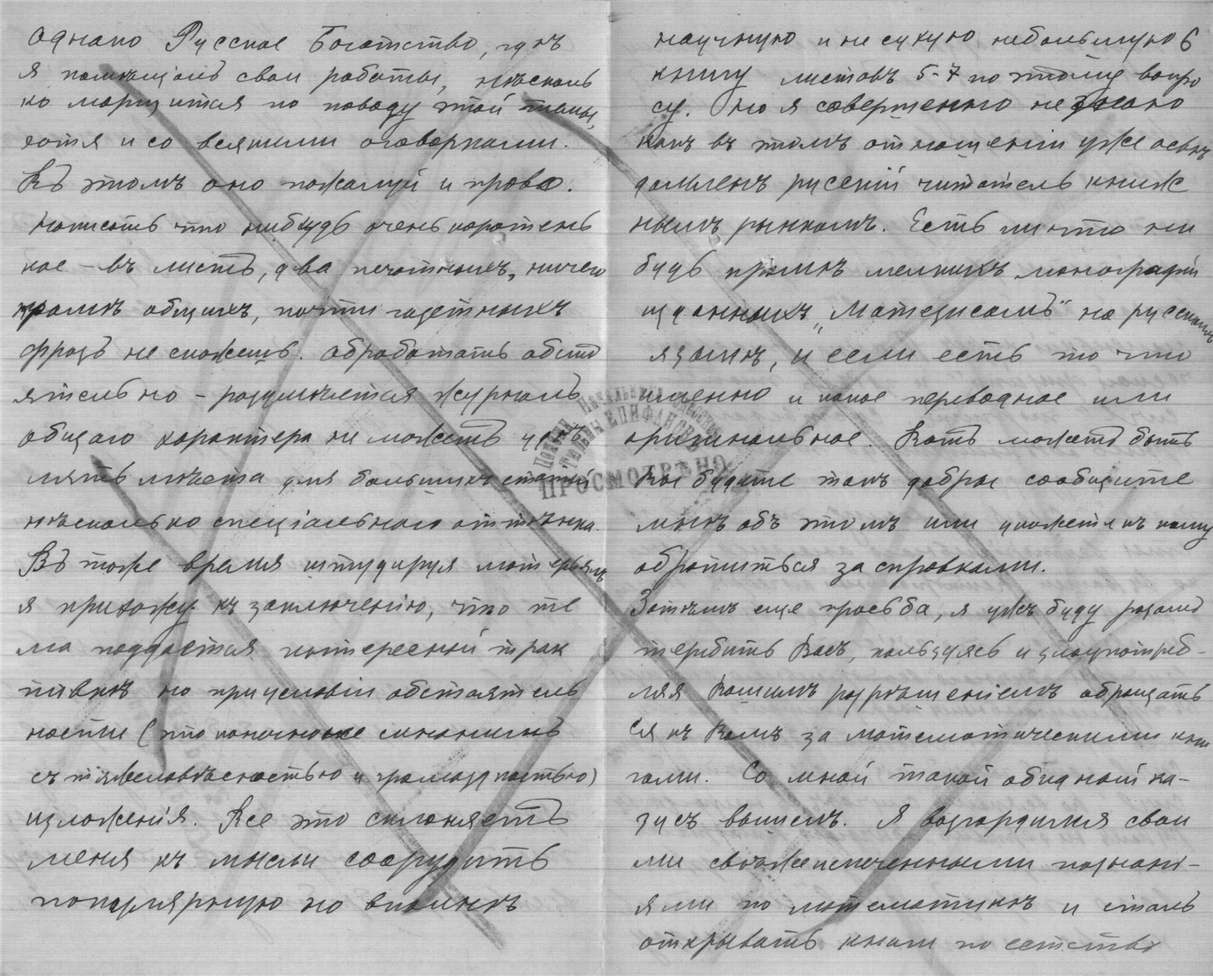 однако Русское Богатство, гдѣ
я помѣщалъ свои работы, нѣсколь
ко морщится по поводу этой темы,
хотя и со всякими оговорками.
Въ этомъ оно пожалуй и право.
Написать что нибудь очень коротень
кое – въ листъ, два печатныхъ, ничего
кромѣ общихъ, почти газетныхъ
фразъ не скажешь. Обработать обсто
ятельно – разумѣется журналъ
общаго характера не можетъ удѣ
лять мѣста для большихъ статей
нѣсколько спеціальнаго оттѣнка.
Въ тоже время штудируя матерьялъ
я прихожу къ заключенію, что те
ма поддается интересной трак
товкѣ но при условіи обстоятель
ности (что конечно не
съ тяжеловѣсностью и громоздкостью)
изложенія. Все это склоняетъ
меня къ мысли соорудить
популярную но вполнѣ
научную и не сухую небольшую
книгу листовъ 5-7 по этому вопро
су. Но я совершенно не знаю
какъ въ этомъ отношеніи уже освѣ
домленъ русскій читатель книж
нымъ рынкомъ. Есть ли что ни
будь кромѣ мелкихъ монографій
изданныхъ „Матезисомъ" на русскомъ
языкѣ, и если есть то что
именно и какое переводное или
оригинальное. Вотъ можетъ быть
Вы будете такъ добры сообщите
мнѣ объ этомъ или укажете къ кому
обратиться за справками.
Затѣмъ еще просьба, я ужъ буду
теребить Васъ, пользуясь и злоупотреб-
ляя Вашимъ разрѣшеніемъ обращать
ся къ Вамъ за математическими кни
гами. Со мной такой обидный ка-
зусъ вышелъ. Я возгордился свои
ми свѣжеиспеченными познані-
ями по математикѣ и сталъ
открывать книги по естество
ПРОСМОТРѢНО